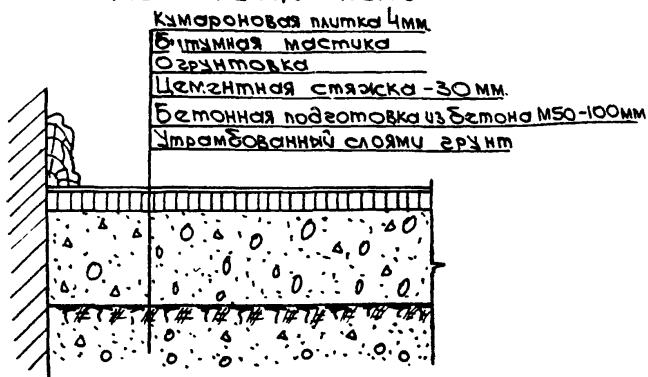 Кумароновая плитка 4мм
Битумная мастика
Огрунтовка
Цементная стяжка -30мм.
Бетонная подготовка из бетона М50-100мм
Утрамбованный слоями грунт